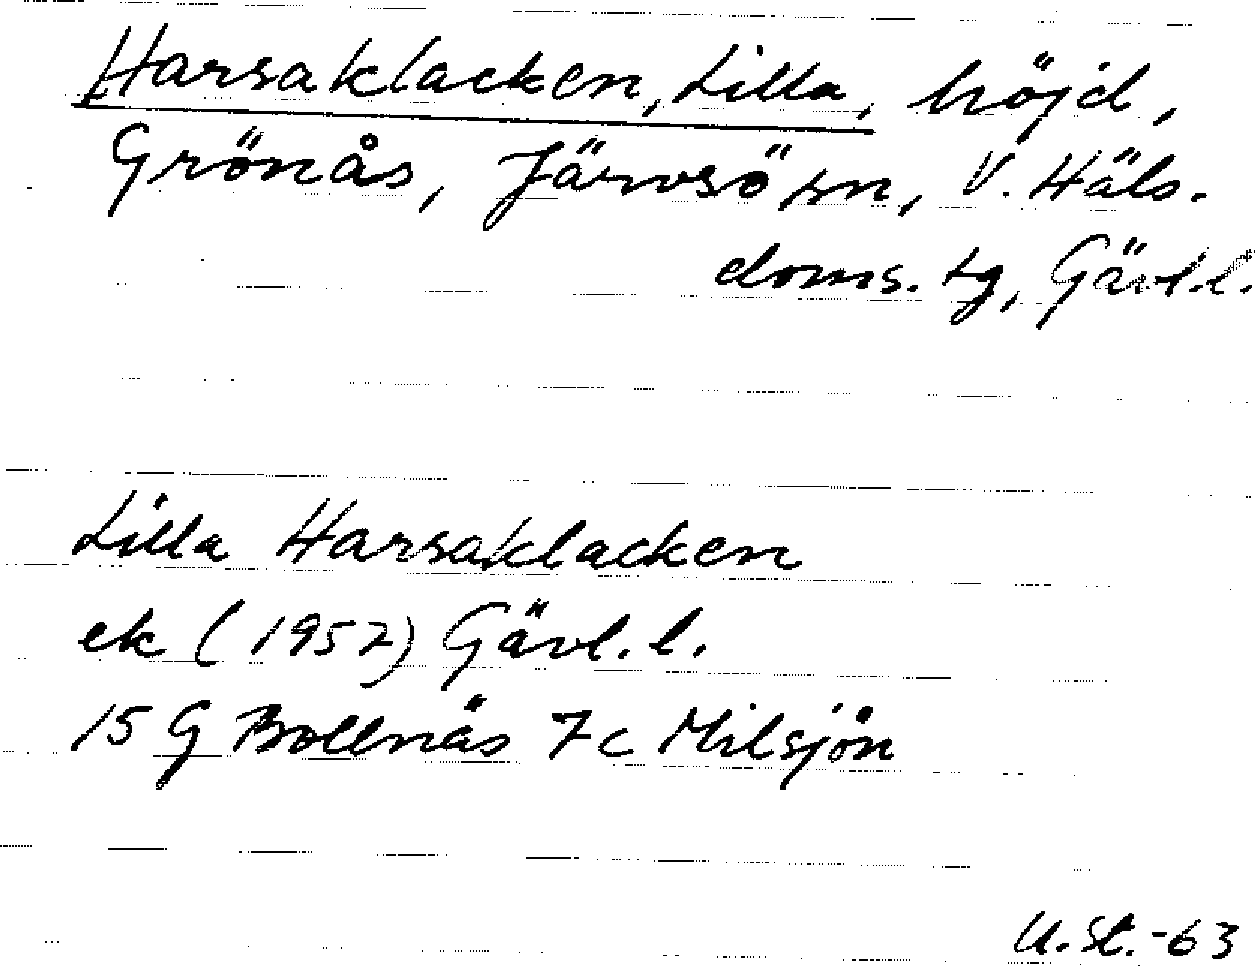 Harsaklacken, Lilla, höjd,
Grönås, Järvsö sn, V. Häls.
doms. tg, Gävl.l.
Lilla Harsaklacken
ek (1957) Gävl. l.
15 G Bollnäs 7c Milsjön
U. St. -63